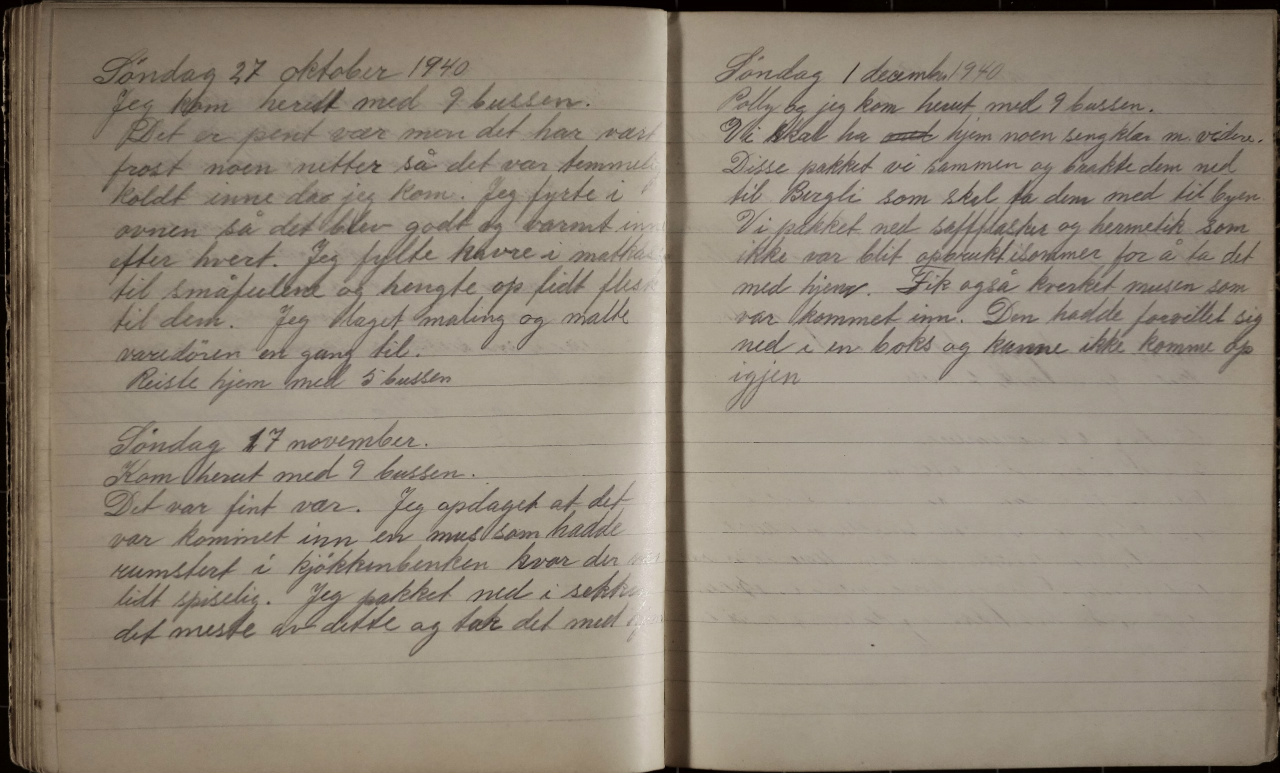 Søndag 27 oktober 1940
Jeg kom herut med 9 bussen.
Det er pent vær men det har vært
frost noen netter så det var temmelig
koldt inne da jeg kom. Jeg fyrte i
ovnen så det blev godt og varmt inne
efter hvert. Jeg fylte havre i
til småfuglene og hengte op lidt flesk
til dem. Jeg laget maling og malte
varedören en gang til.
Reiste hjem med 5 bussen
Søndag 17 november.
Kom herut med 9 bussen.
Det var fint vær. Jeg opdaget at det
var kommet inn en mus som hadde
rumstert i kjökkenbenken hvor der
lidt spiselig. Jeg pakket ned i
det meste av dette og tar det med
Søndag 1 decembr 1940
Polly og jeg kom herut med 9 bussen.
Vi skal ha hjem noen sengklær m. videre.
Disse pakket vi sammen og brakte dem ned
til Bergli som skal ta dem med til byen
Vi pakket ned saftflasker og hermetik som
ikke var blit opbrukt isommer for å ta det
med hjem. Fik også kverket musen som
var kommet inn. Den hadde forvillet sig
ned i en boks og kunne ikke komme op
igjen